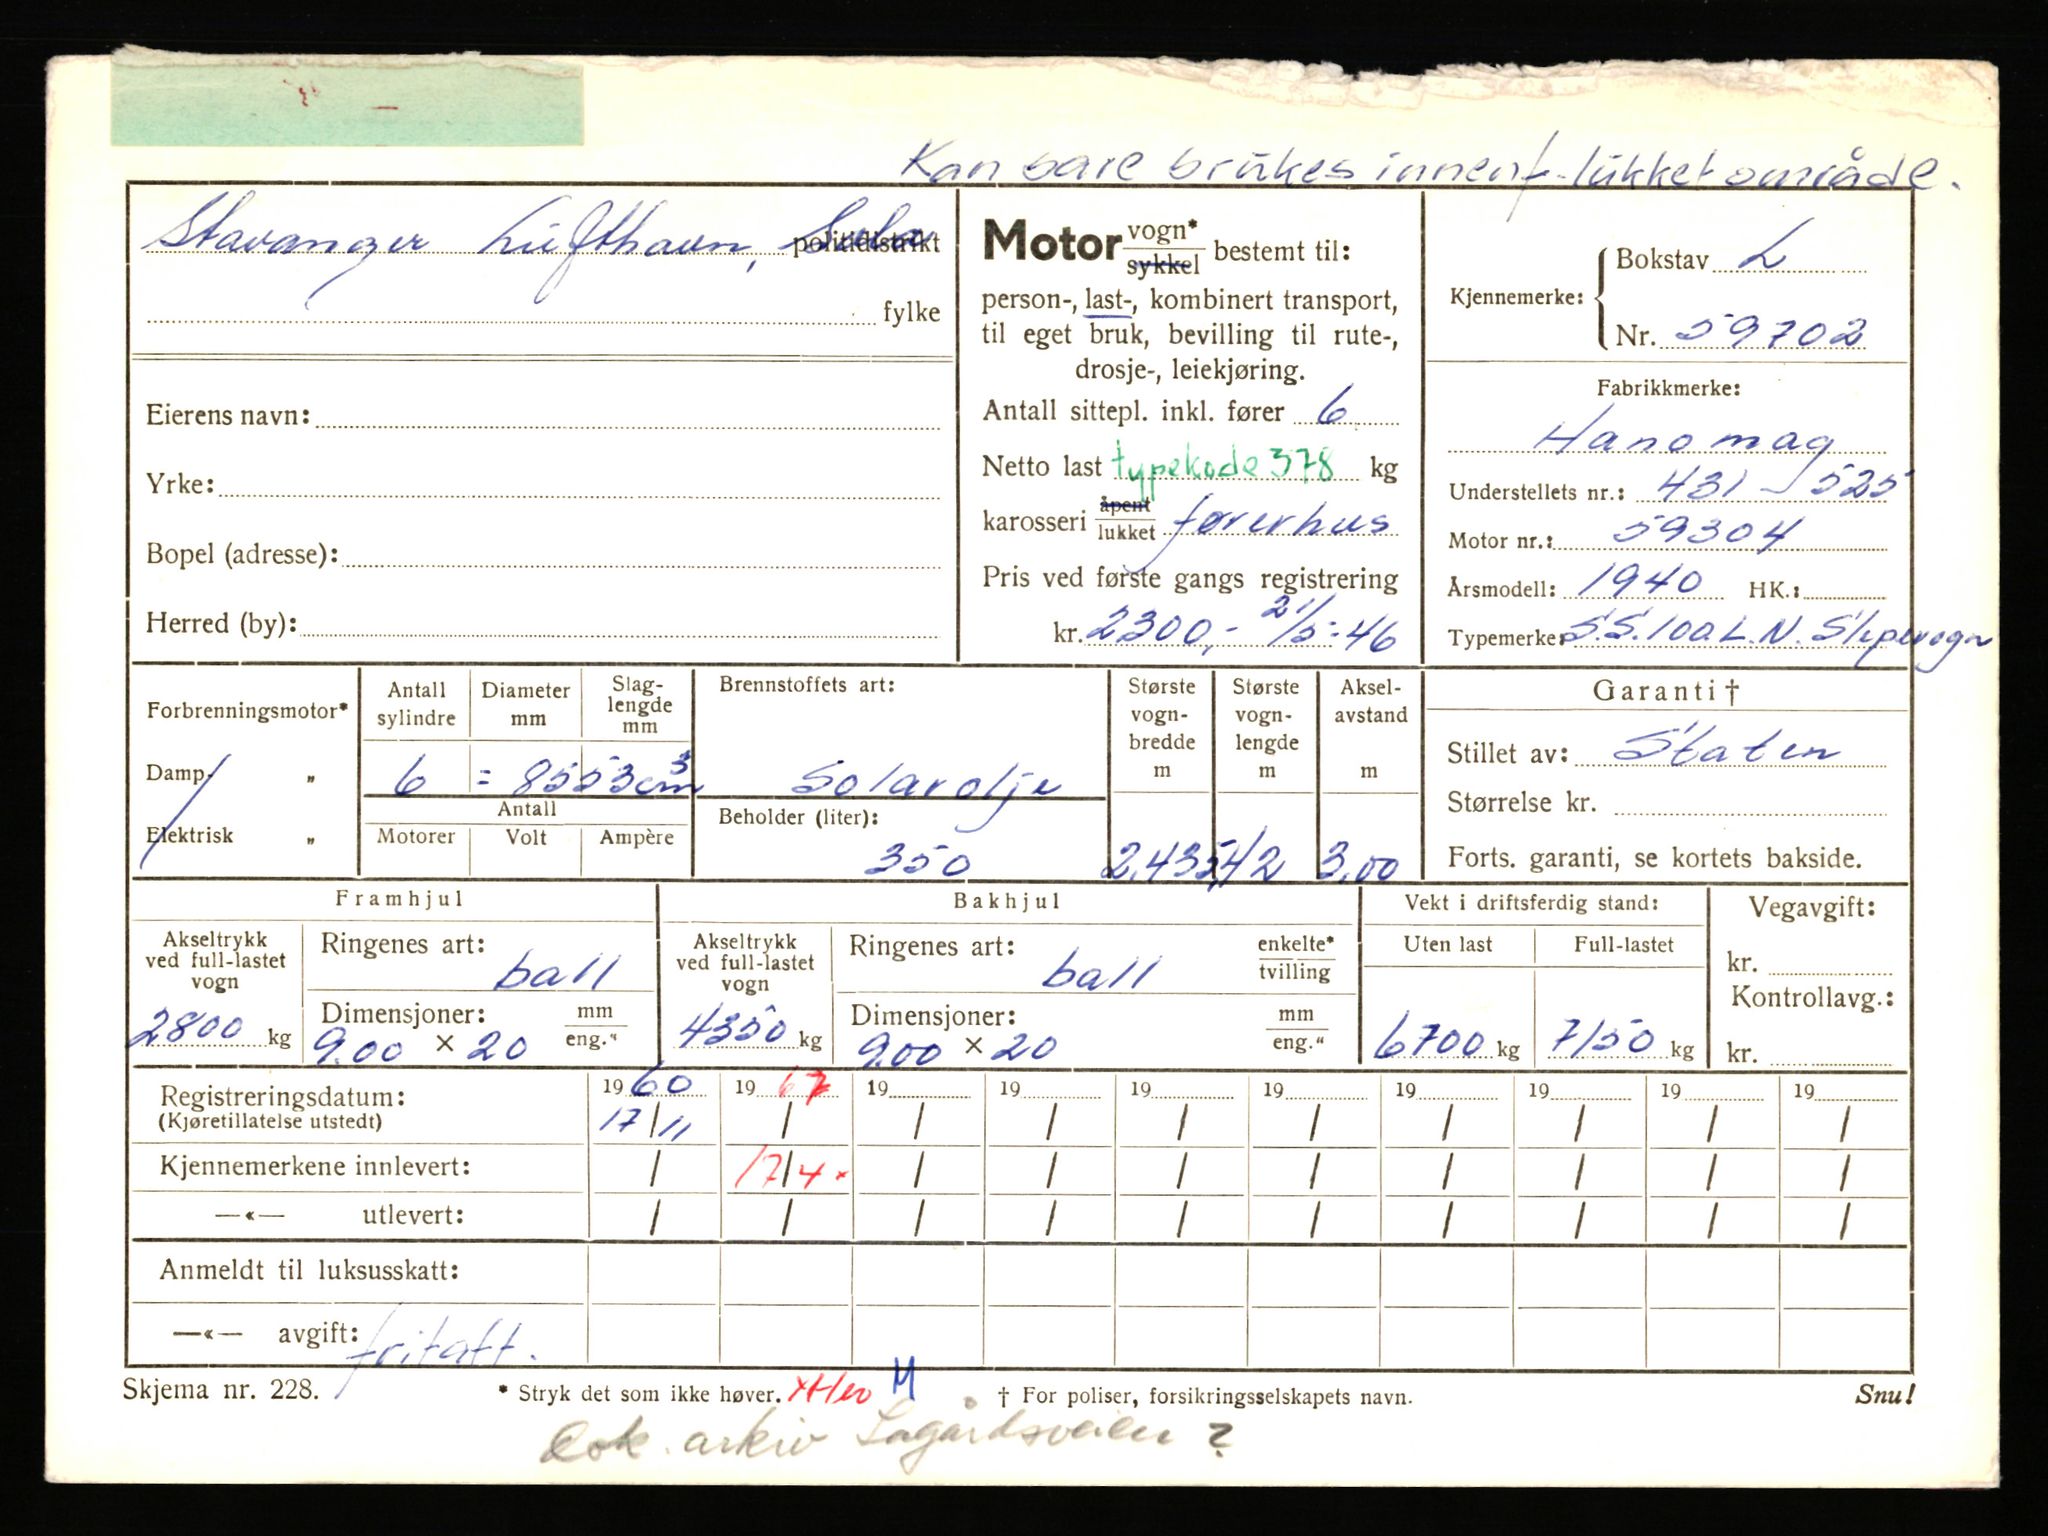 Kan bare brukes innenf. lukket område.
Stavanger Lufthavn, Sola politidistrikt
fylke
Eierens navn:
Yrke:
Bopel (adresse):
Herred (by):
Motor vogn* / sykkel bestemt til:
person-, last-, kombinert transport,
til eget bruk, bevilling til rute-,
drosje-, leiekjøring.
Antall sittepl. inkl. fører 6
Netto last typekode 378 kg
karosseri åpent / lukket førerhus
Pris ved første gangs registrering
kr. 2300,- 21/5-46
Kjennemerke: Bokstav L
Nr. 59702
Fabrikkmerke:
Hanomag
Understellets nr.: 431 - 525
Motor nr.: 59304
Årsmodell: 1940 HK.:
Typemerke: S.S.100.L.N. Slepevogn
Forbrenningsmotor*
Damp- „
Elektrisk „
Antall sylindre
Diameter mm
Slag-lengde mm
6 = 8553 cm3
Antall
Motorer Volt Ampère
Brennstoffets art:
Solarolje
Beholder (liter):
350
Største vogn-bredde m
2,43
Største vogn-lengde m
5,42
Aksel-avstand m
3,00
Garanti †
Stillet av: Staten
Størrelse kr.
Forts. garanti, se kortets bakside.
Framhjul
Akseltrykk ved full-lastet vogn
2800 kg
Ringenes art:
ball
Dimensjoner: mm / eng."
9.00 × 20
Bakhjul
Akseltrykk ved full-lastet vogn
4350 kg
Ringenes art: enkelte* / tvilling
ball
Dimensjoner: mm / eng."
9.00 × 20
Vekt i driftsferdig stand:
Uten last Full-lastet
6700 kg 7150 kg
Vegavgift:
kr.
Kontrollavg.:
kr.
Registreringsdatum: 1960 1967 19 19 19 19 19 19 19 19
(Kjøretillatelse utstedt) 17/11 / / / / / / / / /
Kjennemerkene innlevert: / 17/4 × / / / / / / / /
—«— utlevert: / / / / / / / / / /
Anmeldt til luksusskatt:
—«— avgift: fritatt.
Skjema nr. 228. * Stryk det som ikke høver. M † For poliser, forsikringsselskapets navn. Snu!
Dok. arkiv Lagårdsveien ?